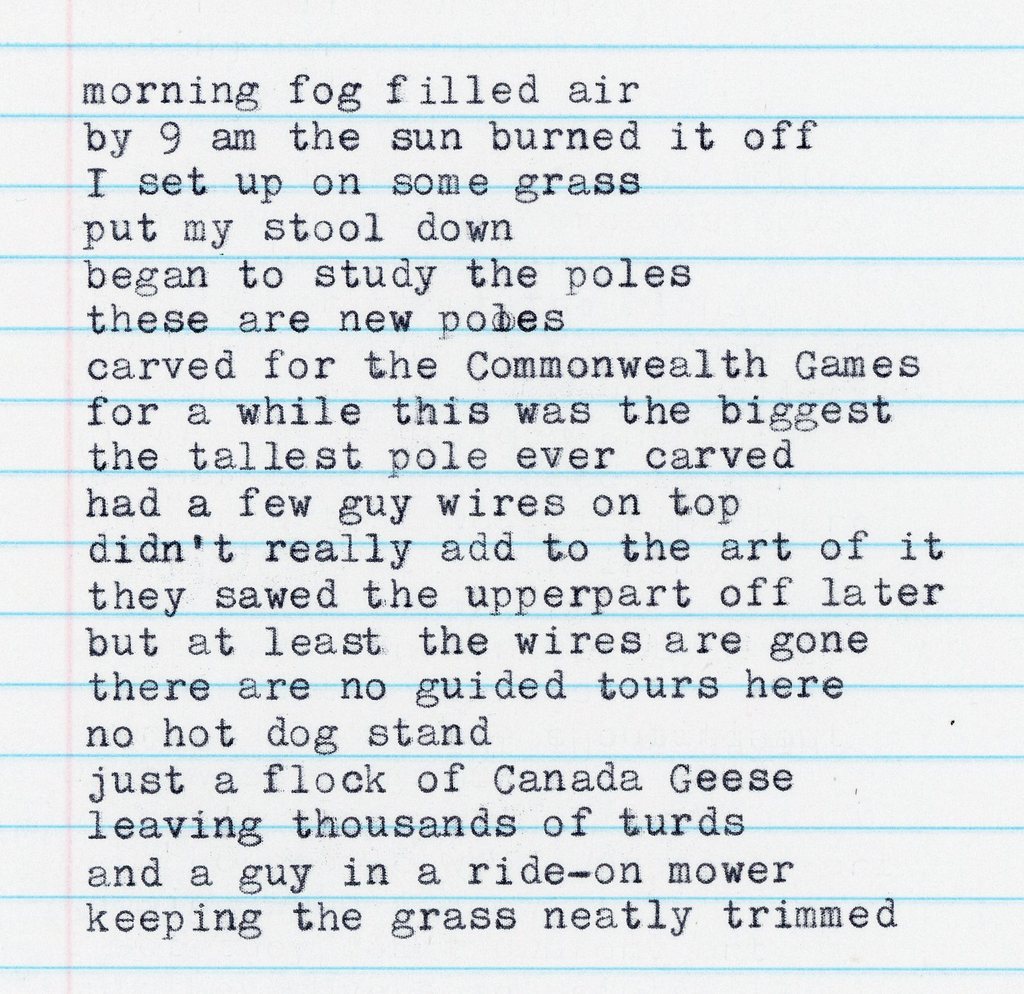 morning fog filled air
by 9 am the sun burned it off
I set up on some grass
put my stool down
began to study the poles
these are new poles
carved for the Commonwealth Games
for a while this was the biggest
the tallest pole ever carved
had a few guy wires on top
didn't really add to the art of it
they sawed the upperpart off later
but at least the wires are gone
there are no guided tours here
no hot dog stand
just a flock of Canada Geese
leaving thousands of turds
and a guy in a ride-on mower
keeping the grass neatly trimmed